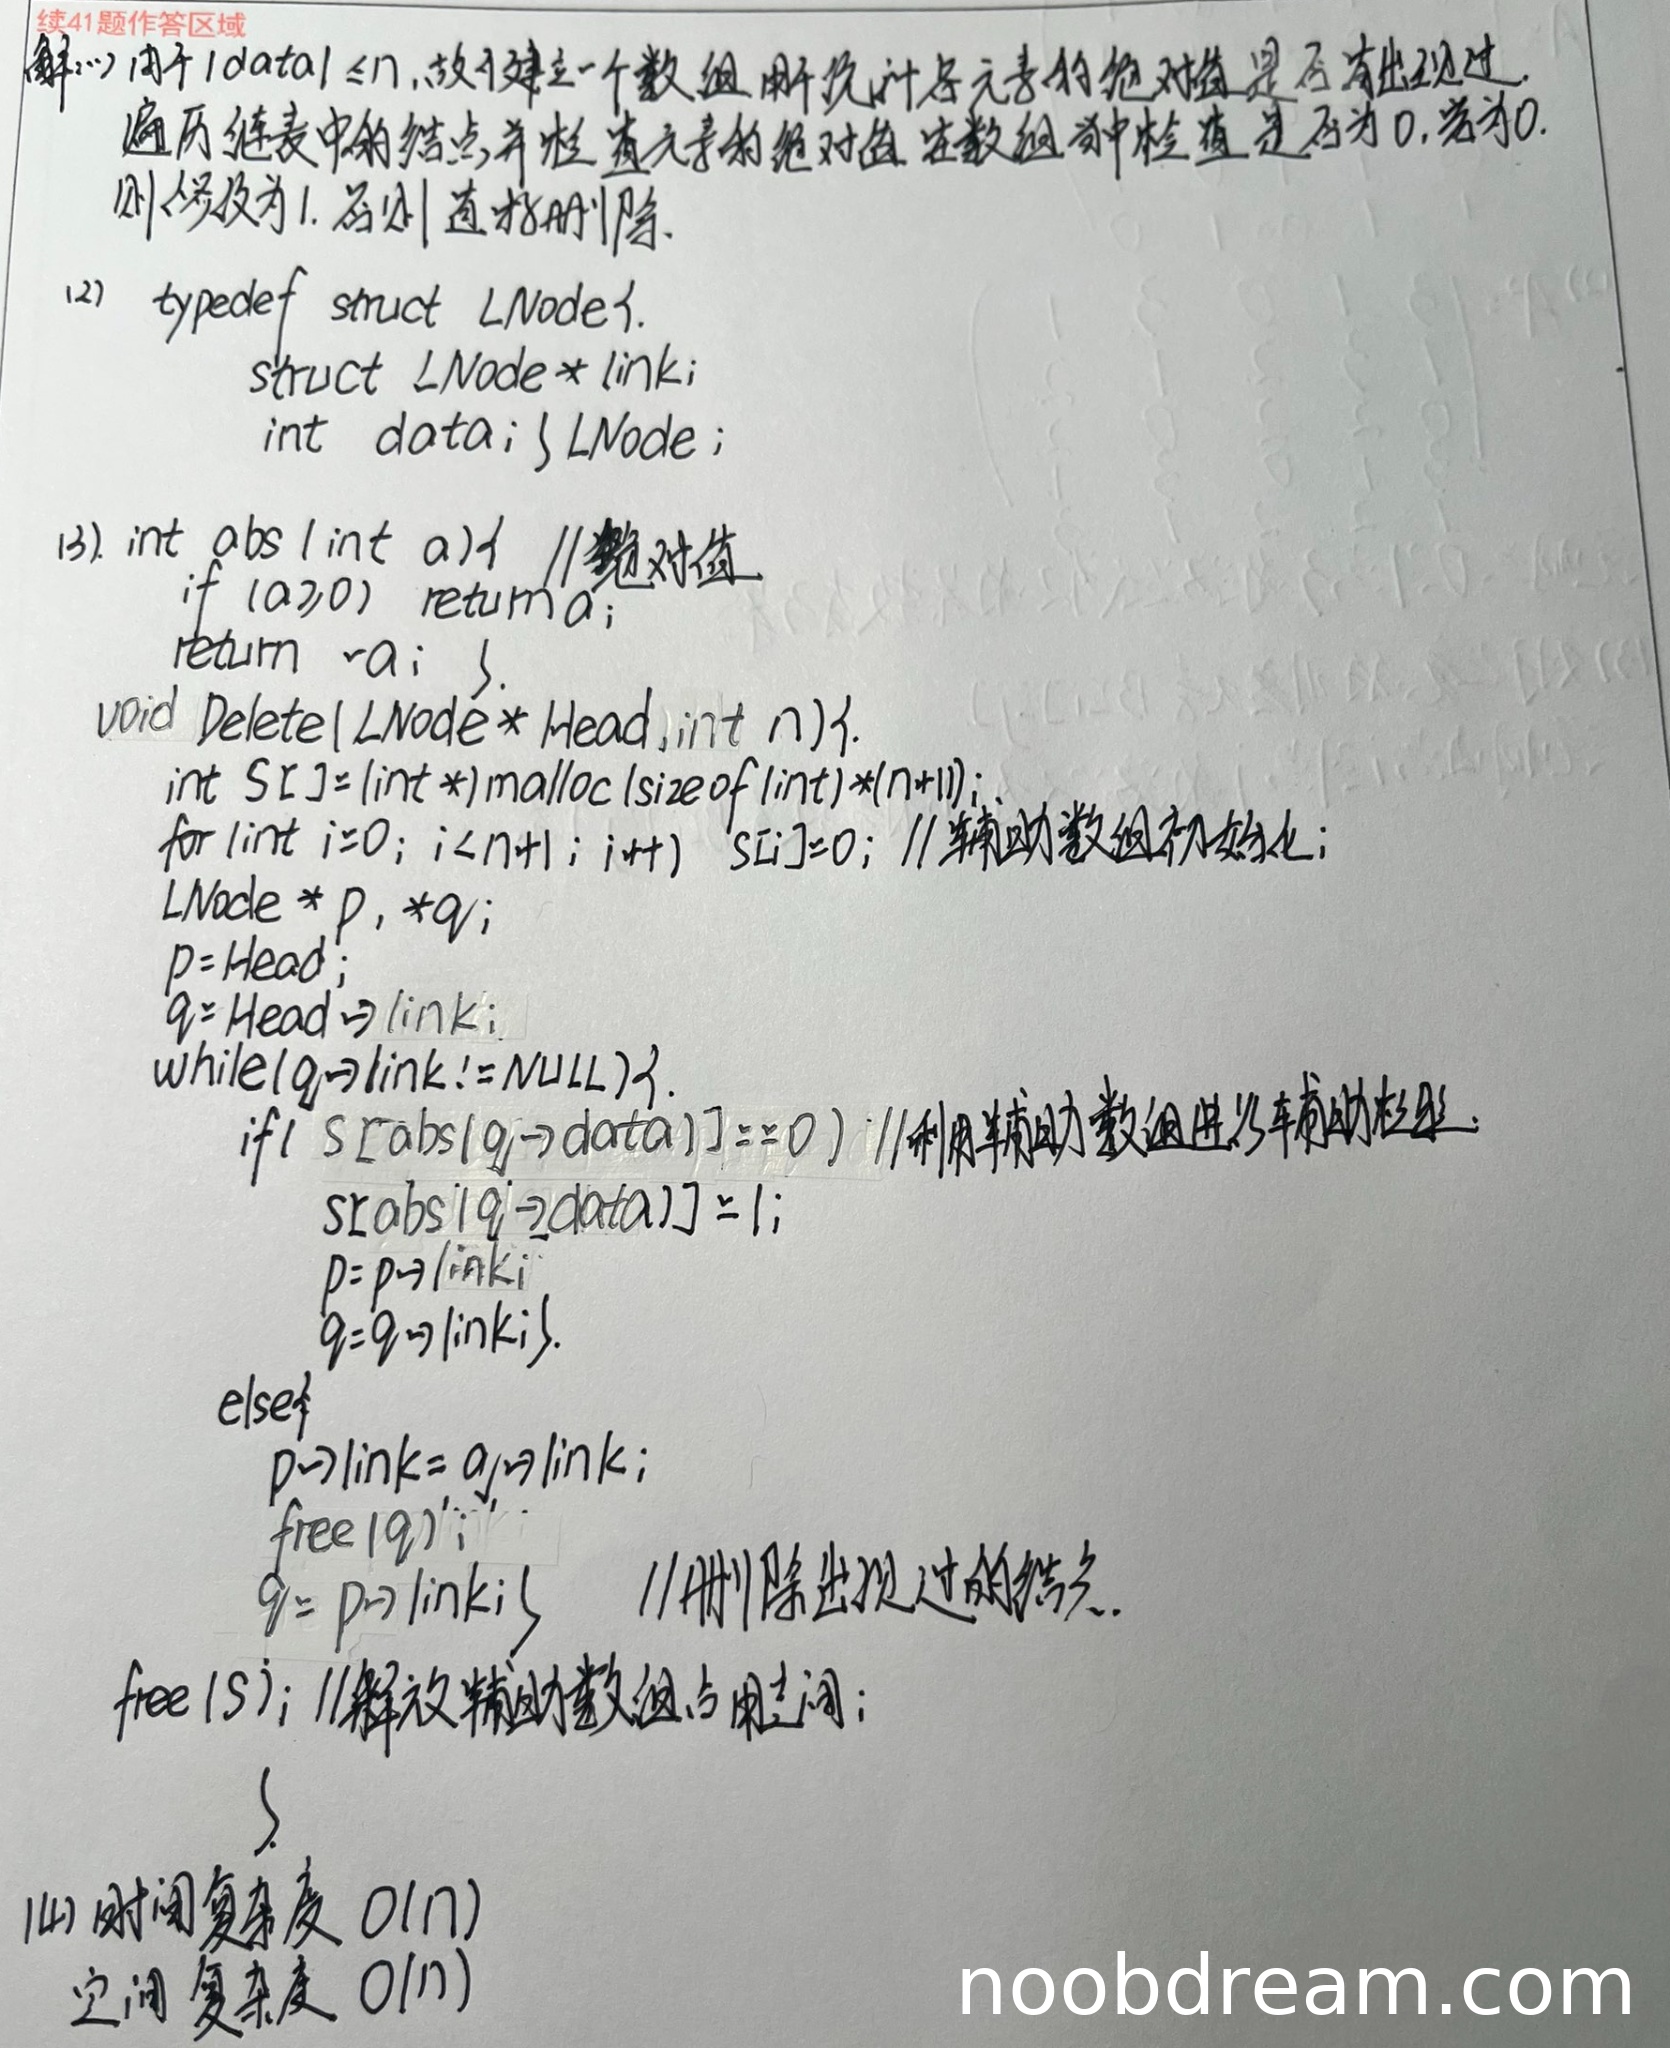 续41题作答区域
解:(1) 由于|data|≤n,故可建立一个数组用于统计各元素的绝对值是否有出现过.
遍历链表中的结点并检查元素的绝对值在数组当中检查是否为0,若为0.
则修改为1.否则直接删除.
(2) typedef struct LNode{.
struct LNode* link;
int data;}LNode;
(3). int abs(int a){ //绝对值
if (a≥0) return a;
return -a; }.
void Delete(LNode* Head,int n){.
int S[]=(int*)malloc(sizeof(int)*(n+1));
for(int i=0; i<n+1; i++) S[i]=0; //辅助数组初始化;
LNode *p, *q;
p=Head;
q=Head->link;
while(q->link!=NULL){.
if( S[abs(q->data)]==0) //利用辅助数组进行辅助
S[abs(q->data)]=1;
p=p->link;
q=q->link;}.
else{
p->link=q->link;
free(q);
q=p->link;} //删除出现过的结点.
free(S); //释放辅助数组占用空间;
}.
(4) 时间复杂度 O(n)
空间复杂度 O(n)
noobdream.com